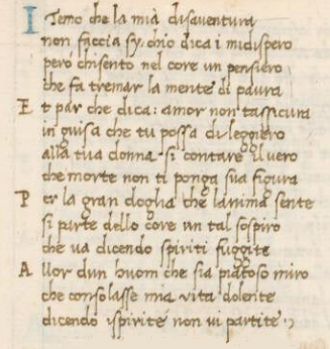 I Temo che la mia disaventura
non faccia sy, chio dica i midispero
pero chisento nel core un pensiero
che fa tremar la mente di paura
E t par che dica: amor non tassicura
in guisa che tu possa di leggiero
alla tua donna si contare il vero
che morte non ti ponga sua figura
P er la gran doglia che lanima sente
si parte dello core un tal sospiro
che va dicendo spiriti fuggite
A llor dun huom che sia piatoso miro
che consolasse mia vita dolente
dicendo ispirite non vi partite